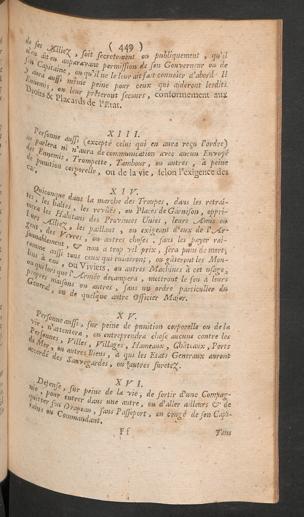 ( 449 )
de ses Alliez, soit secretement ou publiquement, qu'il
n'en ait eu auparavant permission de son Gouverneur ou de
son Capitaine, ou qu'il ne le leur ait fait connoître d'abord. Il
y aura aussi même peine pour ceux qui aideront lesdits
Ennemis, ou leur prêteront secours, conformement aux
Droits & Placards de l'Etat.
XIII.
Personne aussi (excepté celui qui en aura reçu l'ordre)
ne parlera ni n'aura de communication avec aucun Envoyé
des Ennemis, Trompette, Tambour, ou autres, à peine
de punition corporelle, ou de la vie, selon l'exigence des
cas.
XIV.
Quiconque dans la marche des Troupes, dans les retrai-
tes, les haltes, les revûës, ou Places de Garnison, oppri-
mera les Habitans des Provinces Unies, leurs Amis ou
leurs Alliez, les pillant, ou exigeant d'eux de l'Ar-
gent, des Vivres, ou autres choses, sans les payer rai-
sonnablement, & non à trop vil prix, sera puni de mort;
comme aussi tous ceux qui ruineront, ou gâteront les Mou-
lins à eau, ou Viviers, ou autres Machines à cet usage,
ou quelques que l'Armée decampera, mettront le feu à leurs
propres maisons ou autres, sans un ordre particulier du
General, ou de quelque autre Officier Major.
XV.
Personne aussi, sur peine de punition corporelle ou de la
vie, n'attentera, ou entreprendra chose aucune contre les
Personnes, Villes, Villages, Hameaux, Châteaux, Forts
de Mer, ou autres Biens, à qui les Etats Generaux auront
accordé des Sauvegardes, ou autres suretez.
XVI.
Défense, sur peine de la vie, de sortir d'une Compag-
nie, pour entrer dans une autre, ou d'aller ailleurs & de
quitter son Drapeau, sans Passeport, ou congé de son Capi-
taine ou Commandant.
Ff Tous